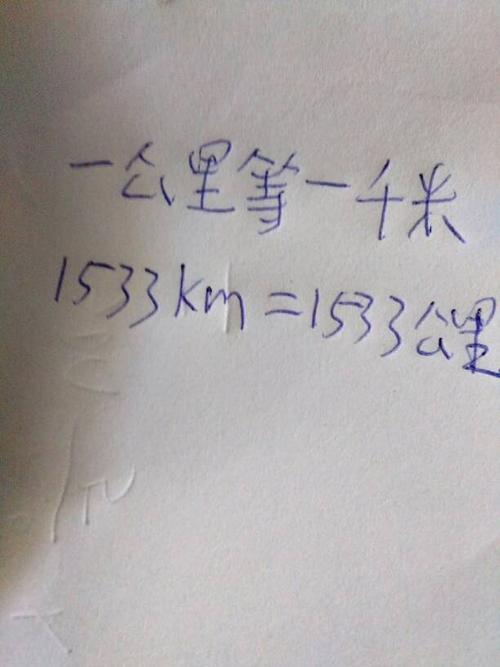 一公里等一千米
1533km=1533公里